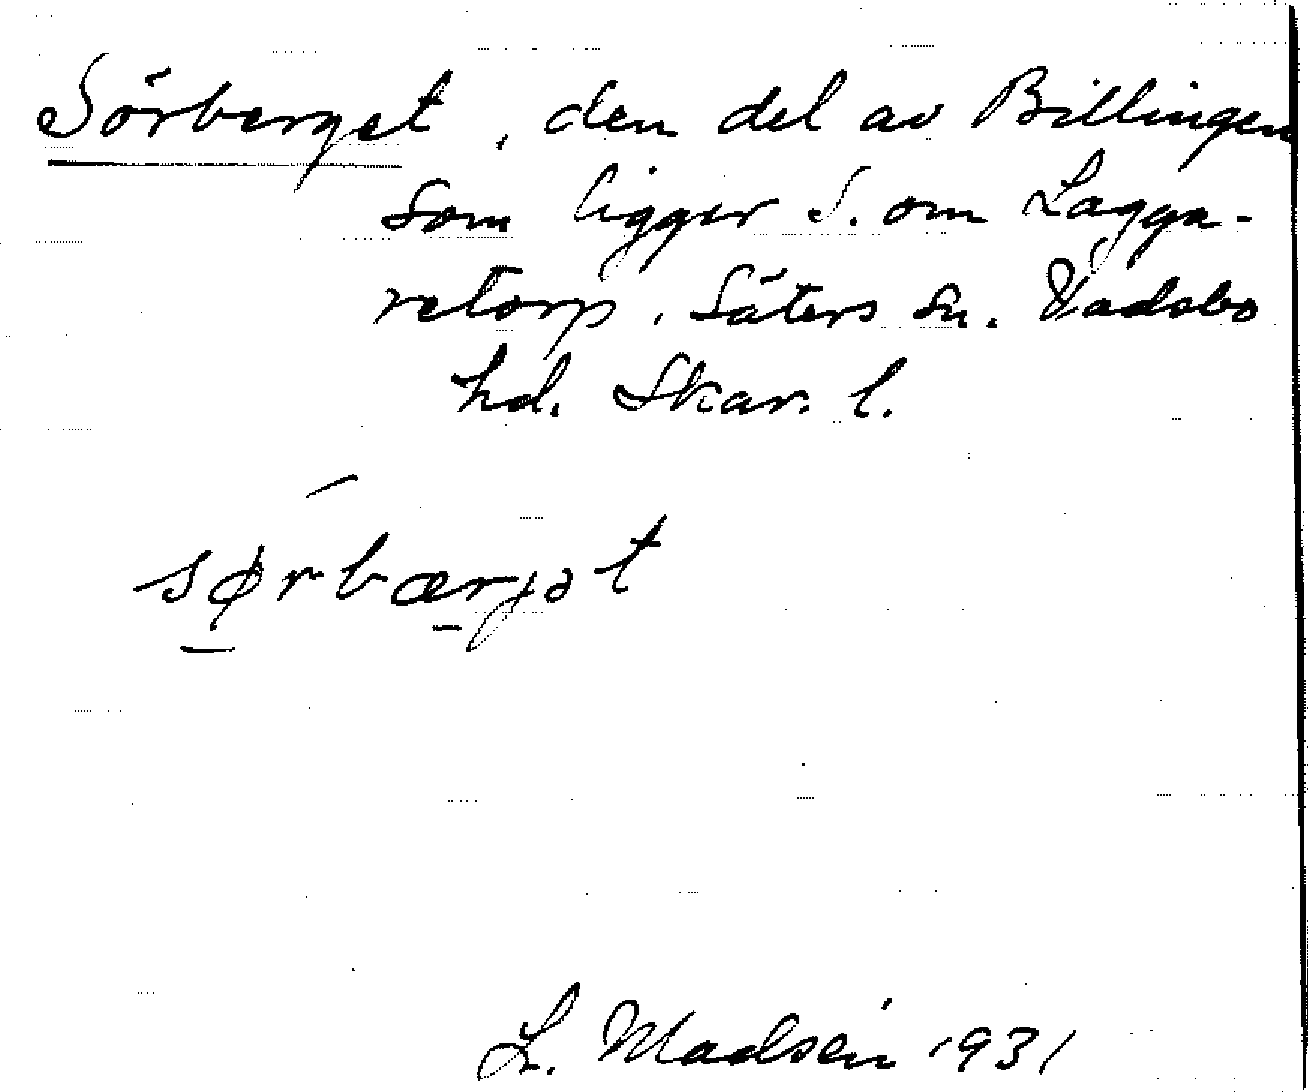 Sörberget, den del av Billingen
som ligger S. om Lagga-
retorp, Säters sn. Vadsbo
hd. Skar. l.
sørbærjət
L. Madsén 1931